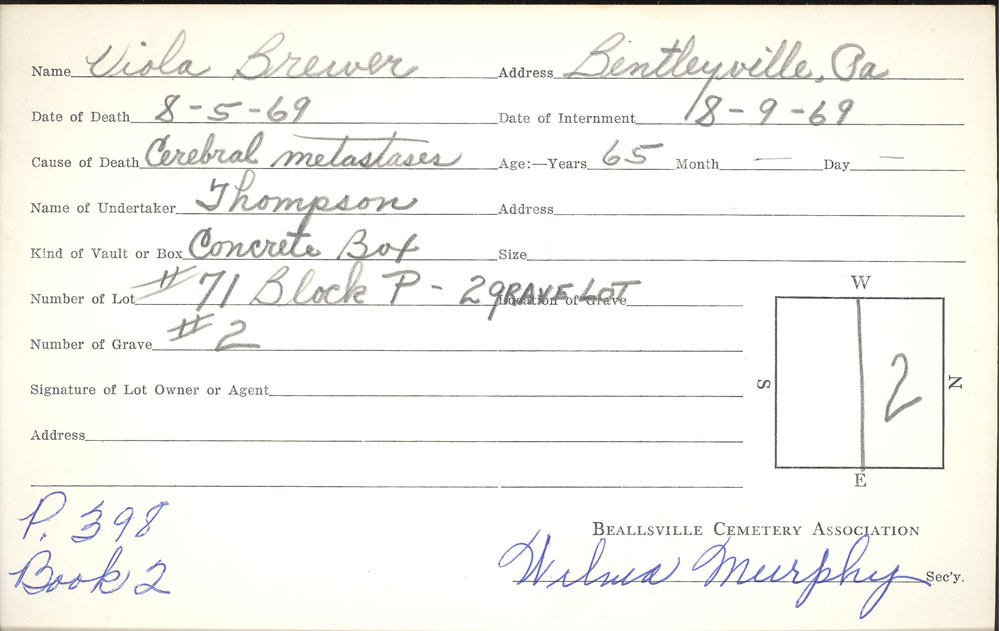 Name Viola Brewer Address Bentleyville, Pa
Date of Death 8-5-69 Date of Internment 8-9-69
Cause of Death Cerebral metastases Age:—Years 65 Month — Day —
Name of Undertaker Thompson Address
Kind of Vault or Box Concrete Box Size
Number of Lot #71 Block P - 2 GRAVE LOT Location of Grave
Number of Grave #2
Signature of Lot Owner or Agent
Address
W
S 2 N
E
P. 398
Book 2
BEALLSVILLE CEMETERY ASSOCIATION
Wilma Murphy Sec'y.